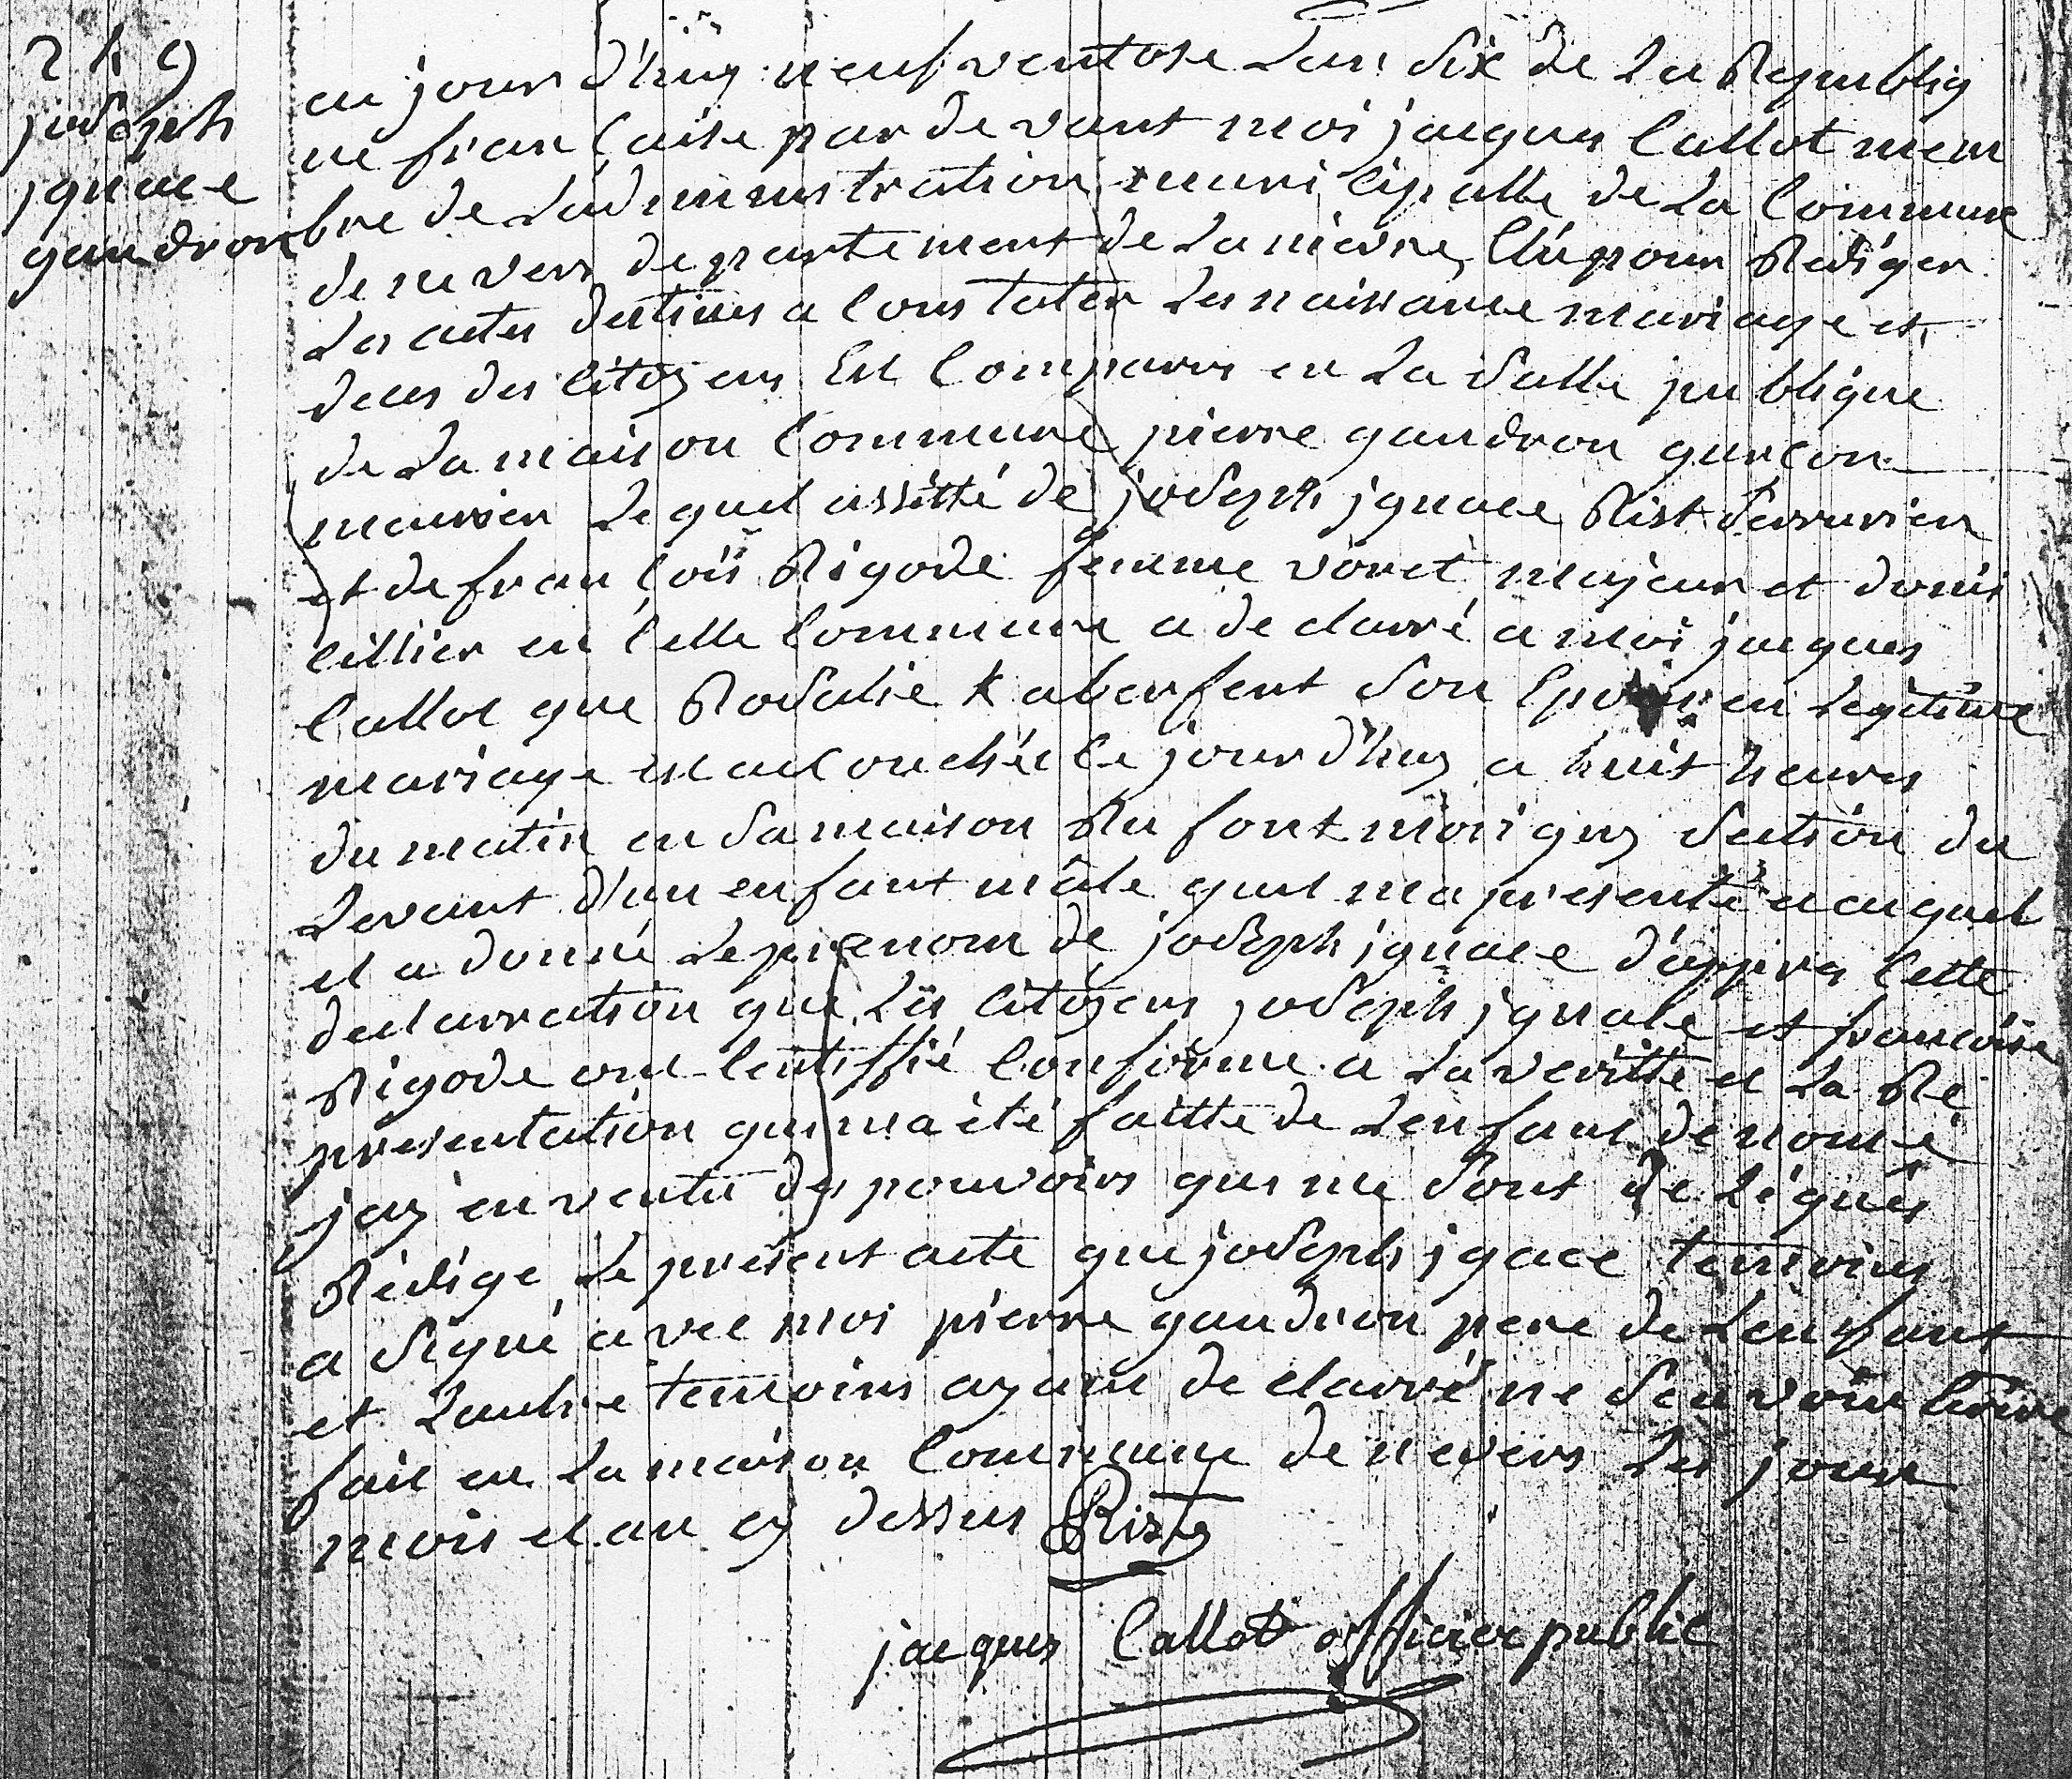 249
joseph
jgnace
gaudron
au jourd'huy neuf ventose L'an Six de La Republiq
ue francaise par devant moi jacques Callot mem
bre de L'administration municipalle de La Commune
de nevers departement de La nievre, Elû pour Rediger
Les actes destinés a Constater Les naissance mariage et
deces des Citoyens Est Comparu en La Salle publique
de La maison Commune pierre gaudron garçon
meunier Lequel assisté de joseph jgnace Rist Serrurier
et de francois Rigode femme voret majeur et domi
cillier en Cette Commune a declarré a moi jacques
Callot que Rosalie kaberfent Son Epouse en Legitime
mariage est accouchée Ce jourd'huy a huit heures
du matin en Sa maison Ru font morigny Section du
Levant d'un enfant mâle quil ma presenté et auquel
il a donné Le prenom de joseph jgnace d'apres Cette
declarration que Les Citoyens joseph jgnace et francoise
Rigode ont Certiffié Conforme a La veritté et La Re
presentation qui ma été faitte de L'enfant denomé
jay en vertu des pouvoirs qui me Sont delégués
Rédigé Le present acte que joseph jgace temoins
a Signé avec moi pierre gaudron pere de L'enfant
et L'autre temoins ayant declarré ne Scavoir Ecrire
fait en La maison Commune de nevers Les jour
mois et an cy dessus Rist
jacques Callot officier public